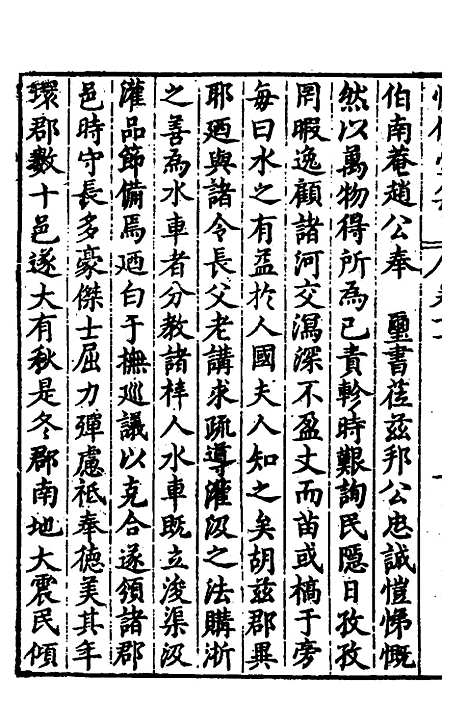 伯南菴趙公奉　璽書莅茲邦公忠誠愷悌慨
然以萬物得所為己責軫時艱詢民隱日孜孜
罔暇逸顧諸河交瀉深不盈丈而苗或槁于旁
每曰水之有益於人國夫人知之矣胡茲郡異
耶廼與諸令長父老講求疏導灌汲之法購浙
之善為水車者分教諸梓人水車既立浚渠汲
灌品節備焉廼白于撫廵議以克合遂頒諸郡
邑時守長多豪傑士屈力殫慮祗奉德美其年
環郡數十邑遂大有秋是冬郡南地大震民傾